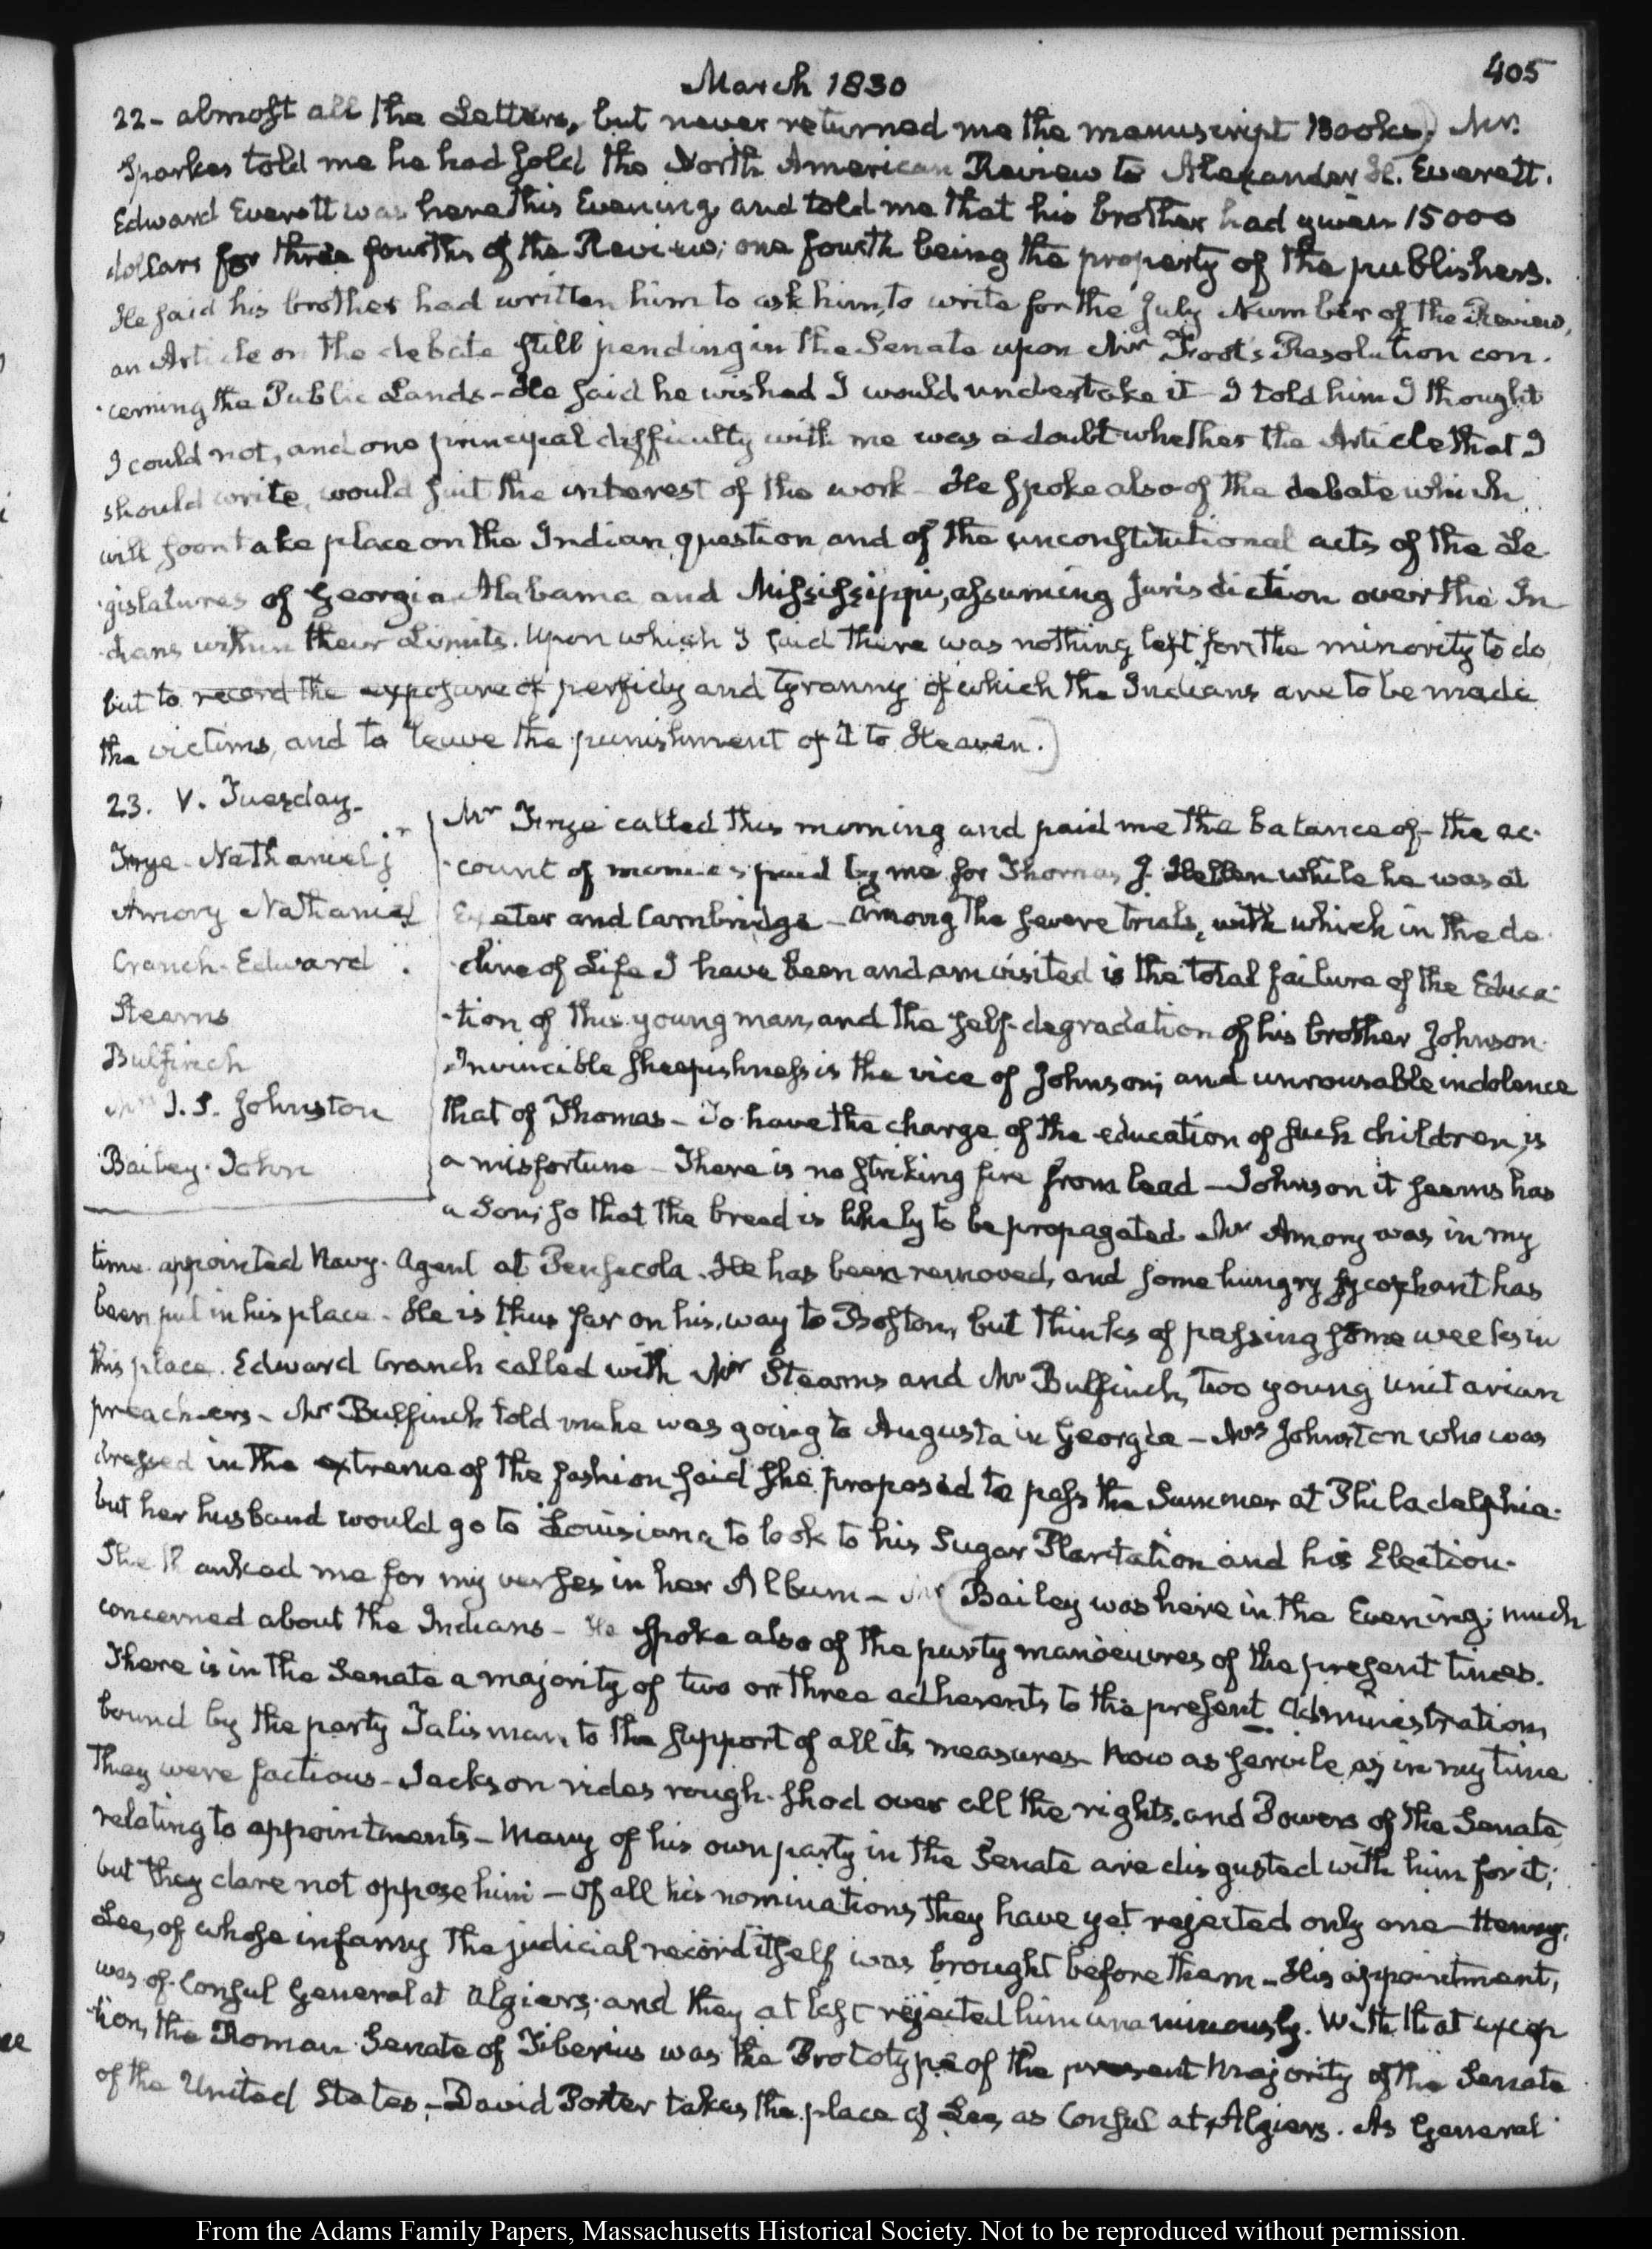 March 1830
405
22- almost all the Letters, but never returned me the manuscript Books) Mr.
Sparkes told me he had sold the North American Review to Alexander H. Everett.
Edward Everett was here this Evening, and told me that his brother had given 15000
dollars for three fourths of the Review; one fourth being the property of the publishers.
He said his brother had written him to ask him, to write for the July Number of the Review,
an Article on the debate still pending in the Senate upon Mr Foot's Resolution con-
-cerning the Public Lands- He said he wished I would undertake it- I told him I thought
I could not, and one principal difficulty with me was a doubt whether the Article that I
should write, would suit the interest of the work- He spoke also of the debate which
will soon take place on the Indian question, and of the unconstitutional acts of the Le-
-gislatures of Georgia Alabama and Mississippi, assuming jurisdiction over the In-
-dians within their Limits. Upon which I said there was nothing left for the minority to do
but to record the exposure of perfidy and tyranny of which the Indians are to be made
the victims, and to leave the punishment of it to Heaven.)
23. V. Tuesday-
Frye- Nathaniel jr
Amory Nathaniel
Cranch- Edward
Stearns
Bulfinch
Mrs J. S. Johnston
Bailey- John
Mr Frye called this morning and paid me the balance of the ac-
-count of monies paid by me for Thomas J. Hellen while he was at
Exeter and Cambridge- Among the severe trials, with which in the de-
-cline of Life I have been and am visited is the total failure of the Educa-
-tion of this young man, and the self-degradation of his brother Johnson-
Invincible sheepishness is the vice of Johnson; and unrousable indolence
that of Thomas- To have the charge of the education of such children, is
a misfortune- There is no striking fire from lead- Johnson it seems has
a Son; so that the breed is likely to be propagated. Mr Amory was in my
time appointed Navy-Agent at Pensacola. He has been removed, and some hungry sycophant has
been put in his place- He is thus far on his way to Boston, but thinks of passing some weeks in
this place. Edward Cranch called with Mr Stearns and Mr Bulfinch, two young Unitarian
preachers- Mr Bulfinch told me he was going to Augusta in Georgia- Mrs Johnston who was
dressed in the extreme of the fashion said she proposed to pass the Summer at Philadelphia-
but her husband would go to Louisiana to look to his Sugar Plantation and his Election-
She thanked me for my verses in her Album- Mr (Bailey was here in the Evening; much
concerned about the Indians- He spoke also of the party manoeuvres of the present times.
There is in the Senate a majority of two or three adherents to the present Administration,
bound by the party Talisman, to the support of all its measures- Now as servile, as in my time
they were factious- Jackson rides rough-shod over all the rights, and Powers of the Senate,
relating to appointments- Many of his own party in the Senate are disgusted with him for it;
but they dare not oppose him- Of all his nominations, they have yet rejected only one- Henry
Lee, of whose infamy the judicial record itself was brought before them- His appointment,
was of Consul General at Algiers; and they at last rejected him unanimously. With that excep
-tion, the Roman Senate of Tiberius was the Prototype of the present Majority of the Senate
of the United States,- David Porter takes the place of Lee, as Consul at Algiers. As General
From the Adams Family Papers, Massachusetts Historical Society. Not to be reproduced without permission.